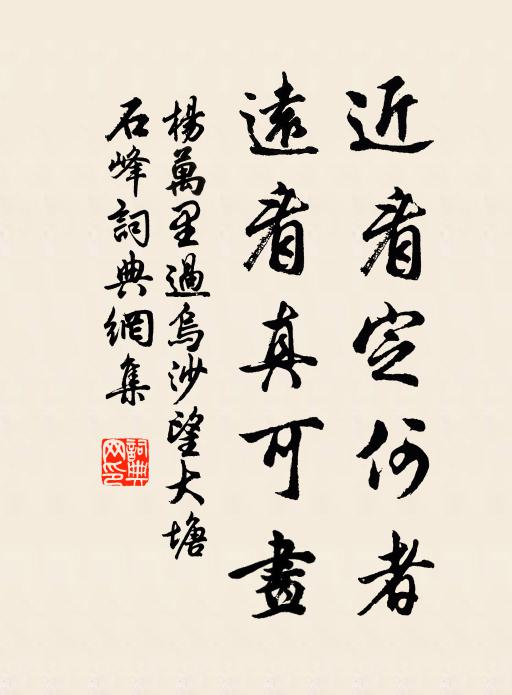 近看定何者
遠看真可畫
楊萬里過烏沙望大塘
石峰詞典網集
詞典網印